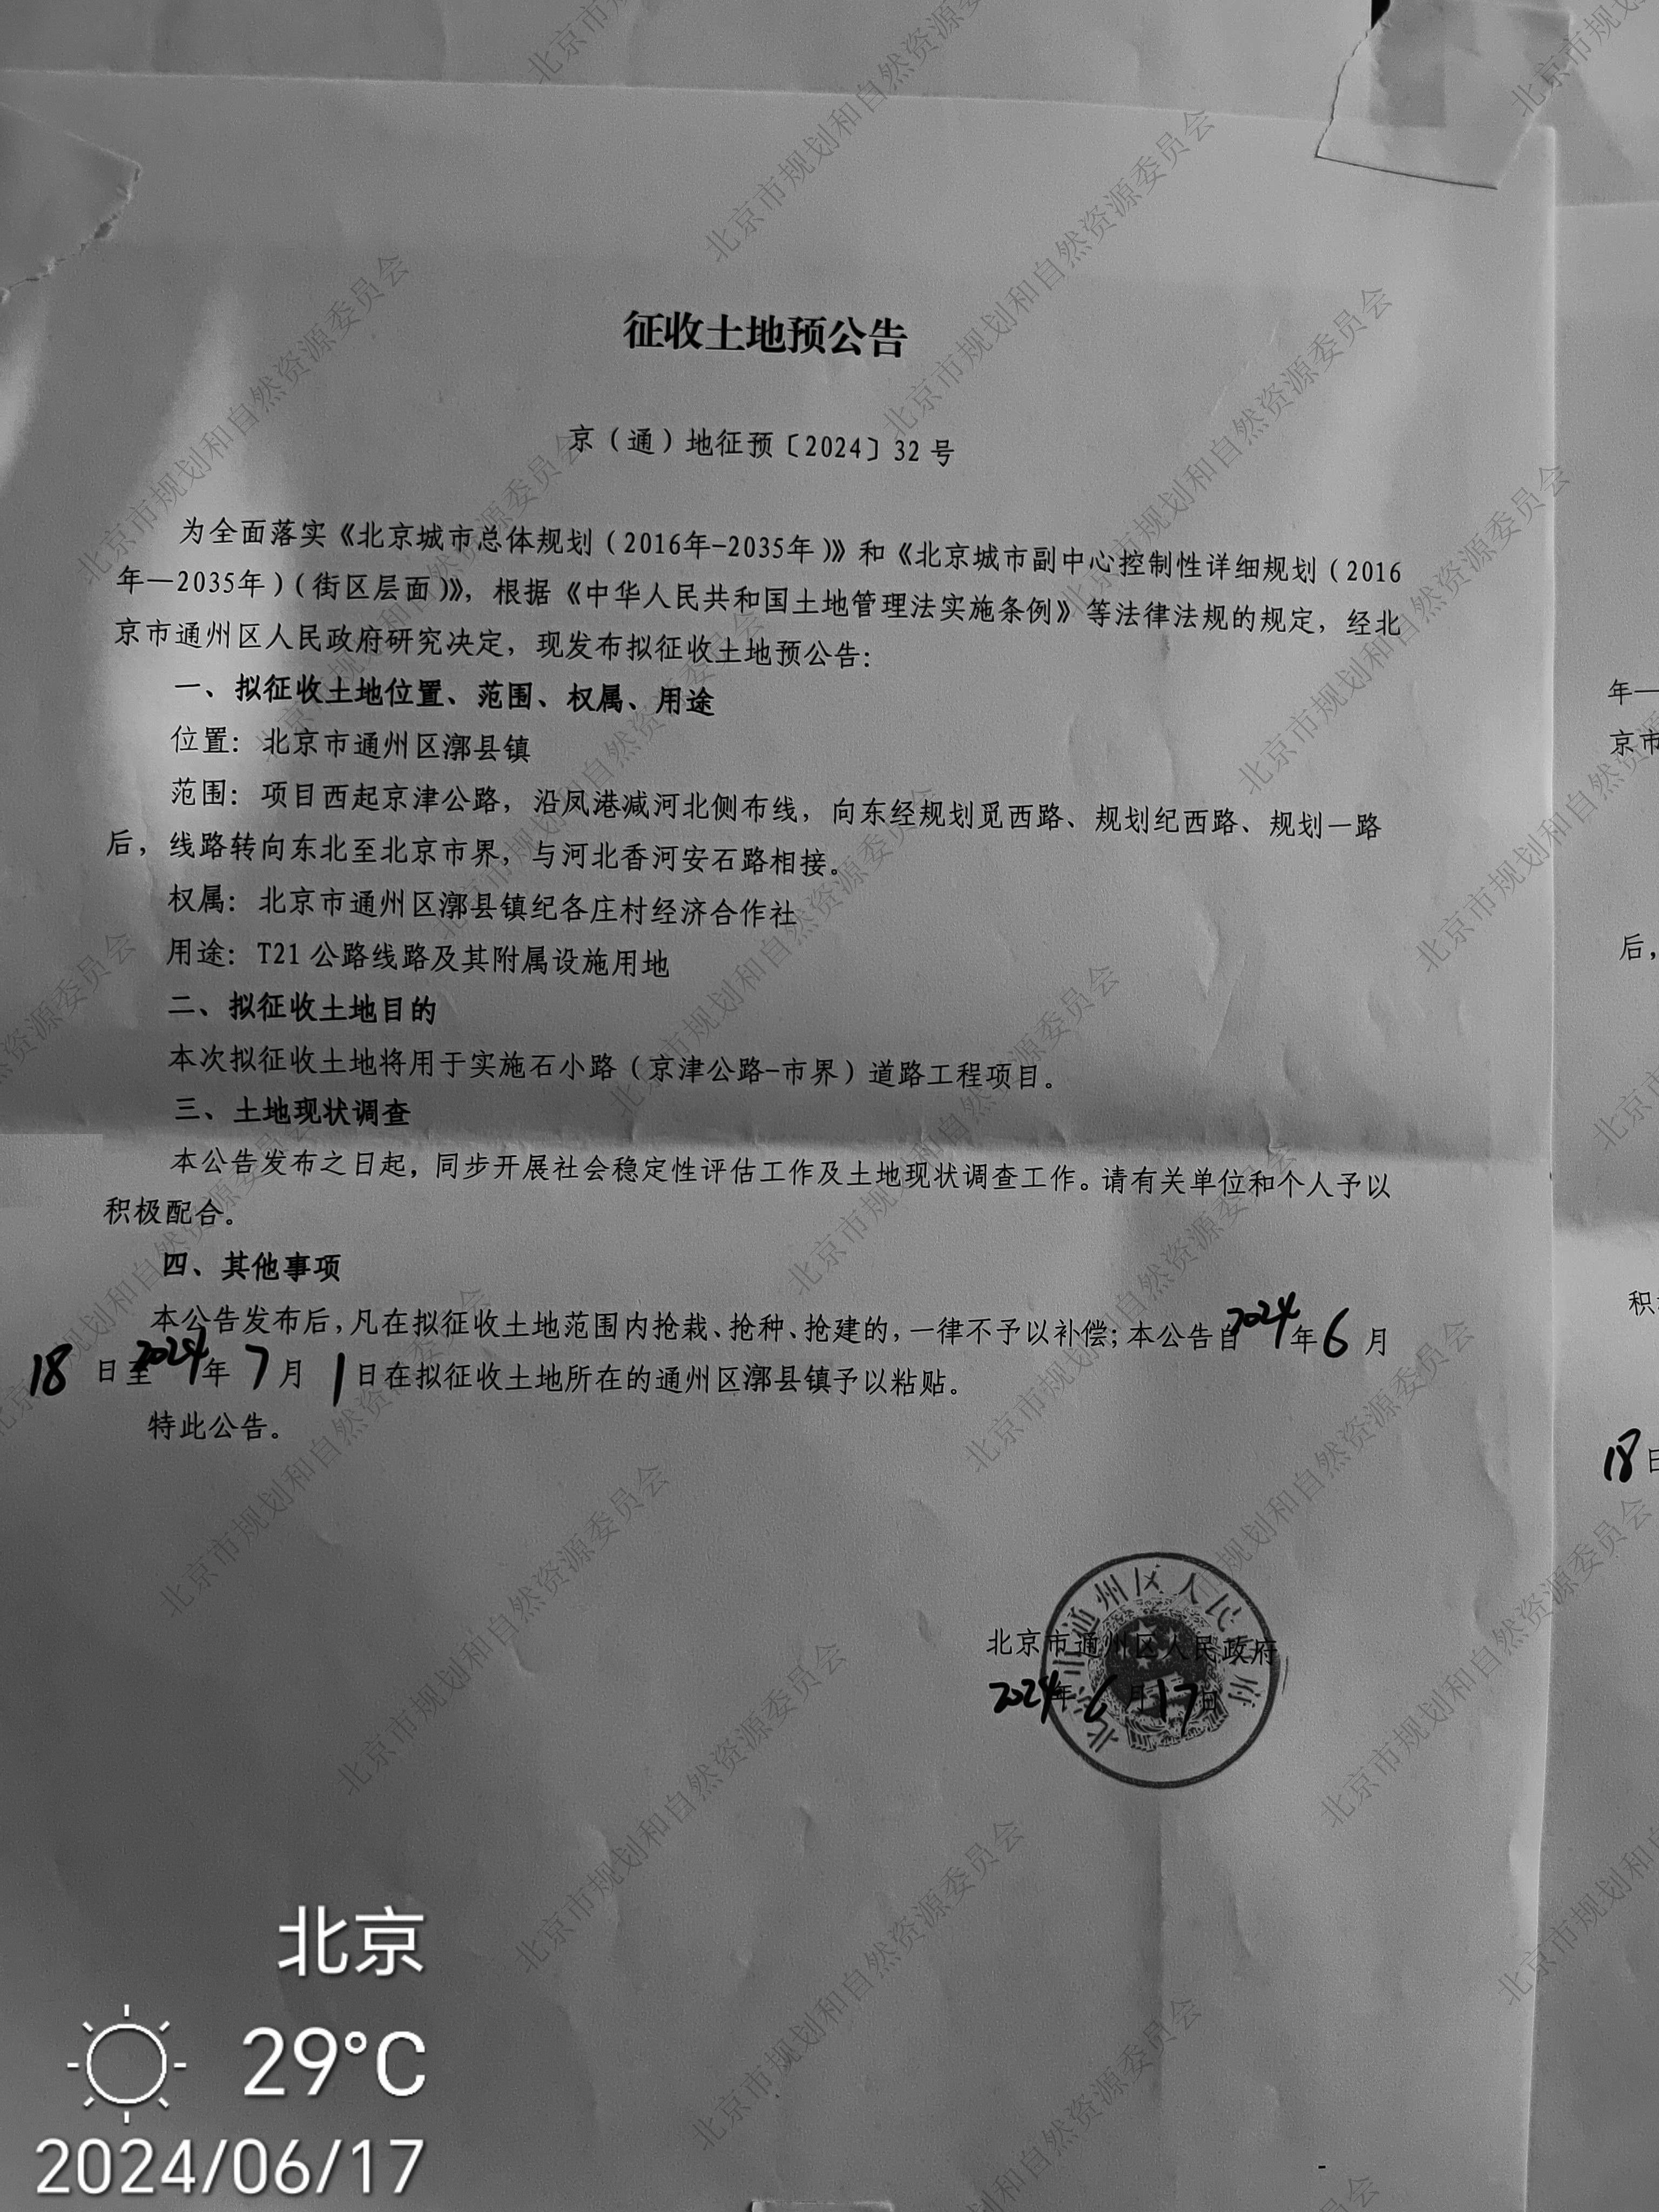 征收土地预公告
京（通）地征预〔2024〕32号
为全面落实《北京城市总体规划（2016年-2035年）》和《北京城市副中心控制性详细规划（2016
年—2035年）（街区层面）》，根据《中华人民共和国土地管理法实施条例》等法律法规的规定，经北
京市通州区人民政府研究决定，现发布拟征收土地预公告：
一、拟征收土地位置、范围、权属、用途
位置：北京市通州区漷县镇
范围：项目西起京津公路，沿凤港减河北侧布线，向东经规划觅西路、规划纪西路、规划一路
后，线路转向东北至北京市界，与河北香河安石路相接。
权属：北京市通州区漷县镇纪各庄村经济合作社
用途：T21公路线路及其附属设施用地
二、拟征收土地目的
本次拟征收土地将用于实施石小路（京津公路-市界）道路工程项目。
三、土地现状调查
本公告发布之日起，同步开展社会稳定性评估工作及土地现状调查工作。请有关单位和个人予以
积极配合。
四、其他事项
本公告发布后，凡在拟征收土地范围内抢栽、抢种、抢建的，一律不予以补偿；本公告自2024年6月
18日至2024年7月1日在拟征收土地所在的通州区漷县镇予以粘贴。
特此公告。
北京市通州区人民政府
2024年6月17日
北京市通州区人民政府
年—
京市
后，
积
18日
北京
29°C
2024/06/17
北京市规划和自然资源委员会